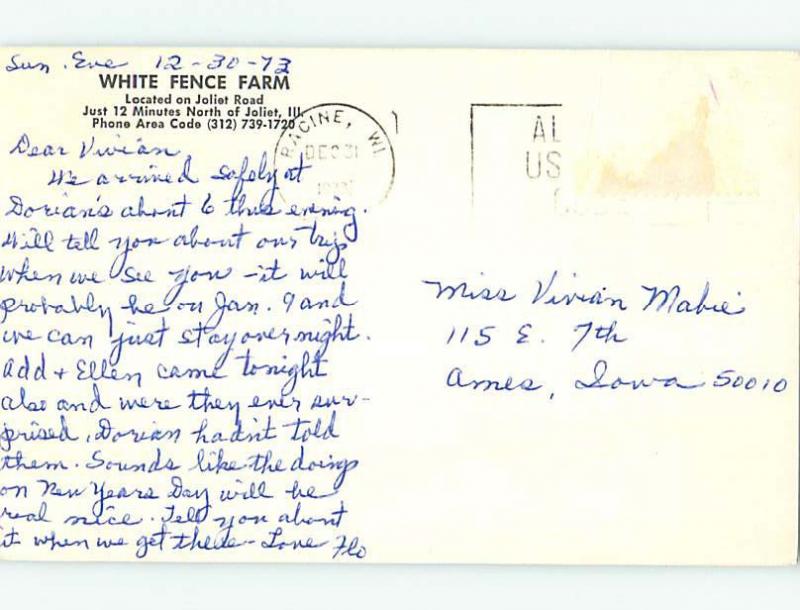 Sun. Eve 12-30-73
WHITE FENCE FARM
Located on Joliet Road
Just 12 Minutes North of Joliet, Ill.
Phone Area Code (312) 739-1720
RACINE, WI
DEC 31
AL
US
Dear Vivian
We arrived safely at
Dorian's about 6 this evening.
Will tell you about our trip
when we see you - it will
probably be on Jan. 9 and
we can just stay over night.
Add + Ellen came tonight
also and were they ever sur-
prised. Dorian hadn't told
them. Sounds like the doings
on New Years Day will be
real nice. Tell you about
it when we get there - Love Flo
Miss Vivian Mabie
115 E. 7th
Ames, Iowa 50010